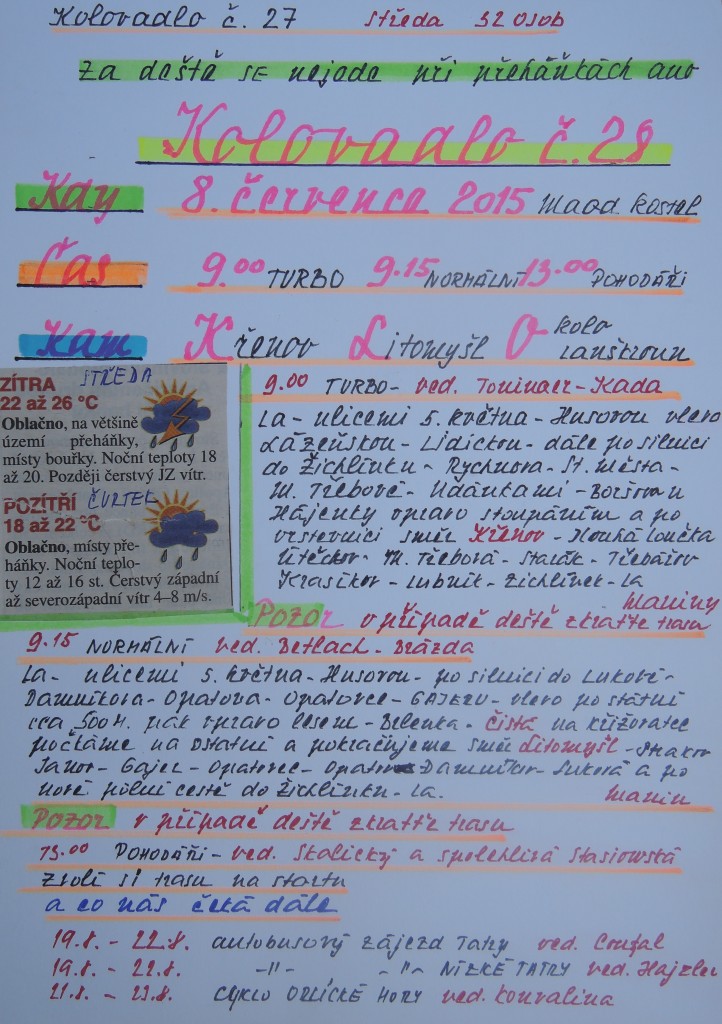 Kolovadlo č. 27 středa 32 osob
Za deště SE nejede při přeháňkách ano
Kolovadlo č. 28
Kdy 8. července 2015 Maod. kostel
Čas 9.00 TURBO 9.15 NORMÁLNÍ 13.00 POHODÁŘI
Kam Křenov Litomyšl Okolo
Lanškroun
ZÍTRA STŘEDA
22 až 26 °C
Oblačno, na většině
území přeháňky,
místy bouřky. Noční teploty 18
až 20. Později čerstvý JZ vítr.
POZÍTŘÍ ČVRTEK
18 až 22 °C
Oblačno, místy pře-
háňky. Noční teplo-
ty 12 až 16 st. Čerstvý západní
až severozápadní vítr 4–8 m/s.
9.00 TURBO - ved. Kada
La - ulicemi 5. května - Husovou vlevo
Lázeňskou - Lidickou - dále po silnici
do Žichlínku - Rychnova - St. Města -
M. Třebové - Udánkami - Boršov u
Hájenky vpravo stoupáním a po
vrstevnici směr Křenov - Dlouhá Loučka
Útěchov - M. Třebová - Staník - Třebařov
Krasíkov - Lubník - Žichlínek - La
Maniny
Pozor v případě deště zkraťte trasu
9.15 NORMÁLNÍ ved. Betlach - Brázda
La - ulicemi 5. května - Husovou - po silnici do Lukové -
Damníkova - Opatova - Opatovce - GAJERU - vlevo po státní
cca 500 m. pak vpravo lesem - Belenka - Čistá na křižovatce
počkáme na ostatní a pokračujeme směr Litomyšl - Strakov
Janov - Gajer - Opatovec - Opatov - Damníkov - Luková a po
nové polní cestě do Žichlínku - La. Manin
Pozor v případě deště zkraťte trasu
13.00 POHODÁŘI - ved. Skalický a spolehlivá Stasiowská
zvolí si trasu na startu
a co nás čeká dále
19.8. - 22.8. autobusový zájezd Tatry ved. Coufal
19.8. - 22.8. -"- -"- NÍZKÉ TATRY ved. Hajzler
21.8. - 23.8. CYKLO ORLICKÉ HORY ved. Konvalina